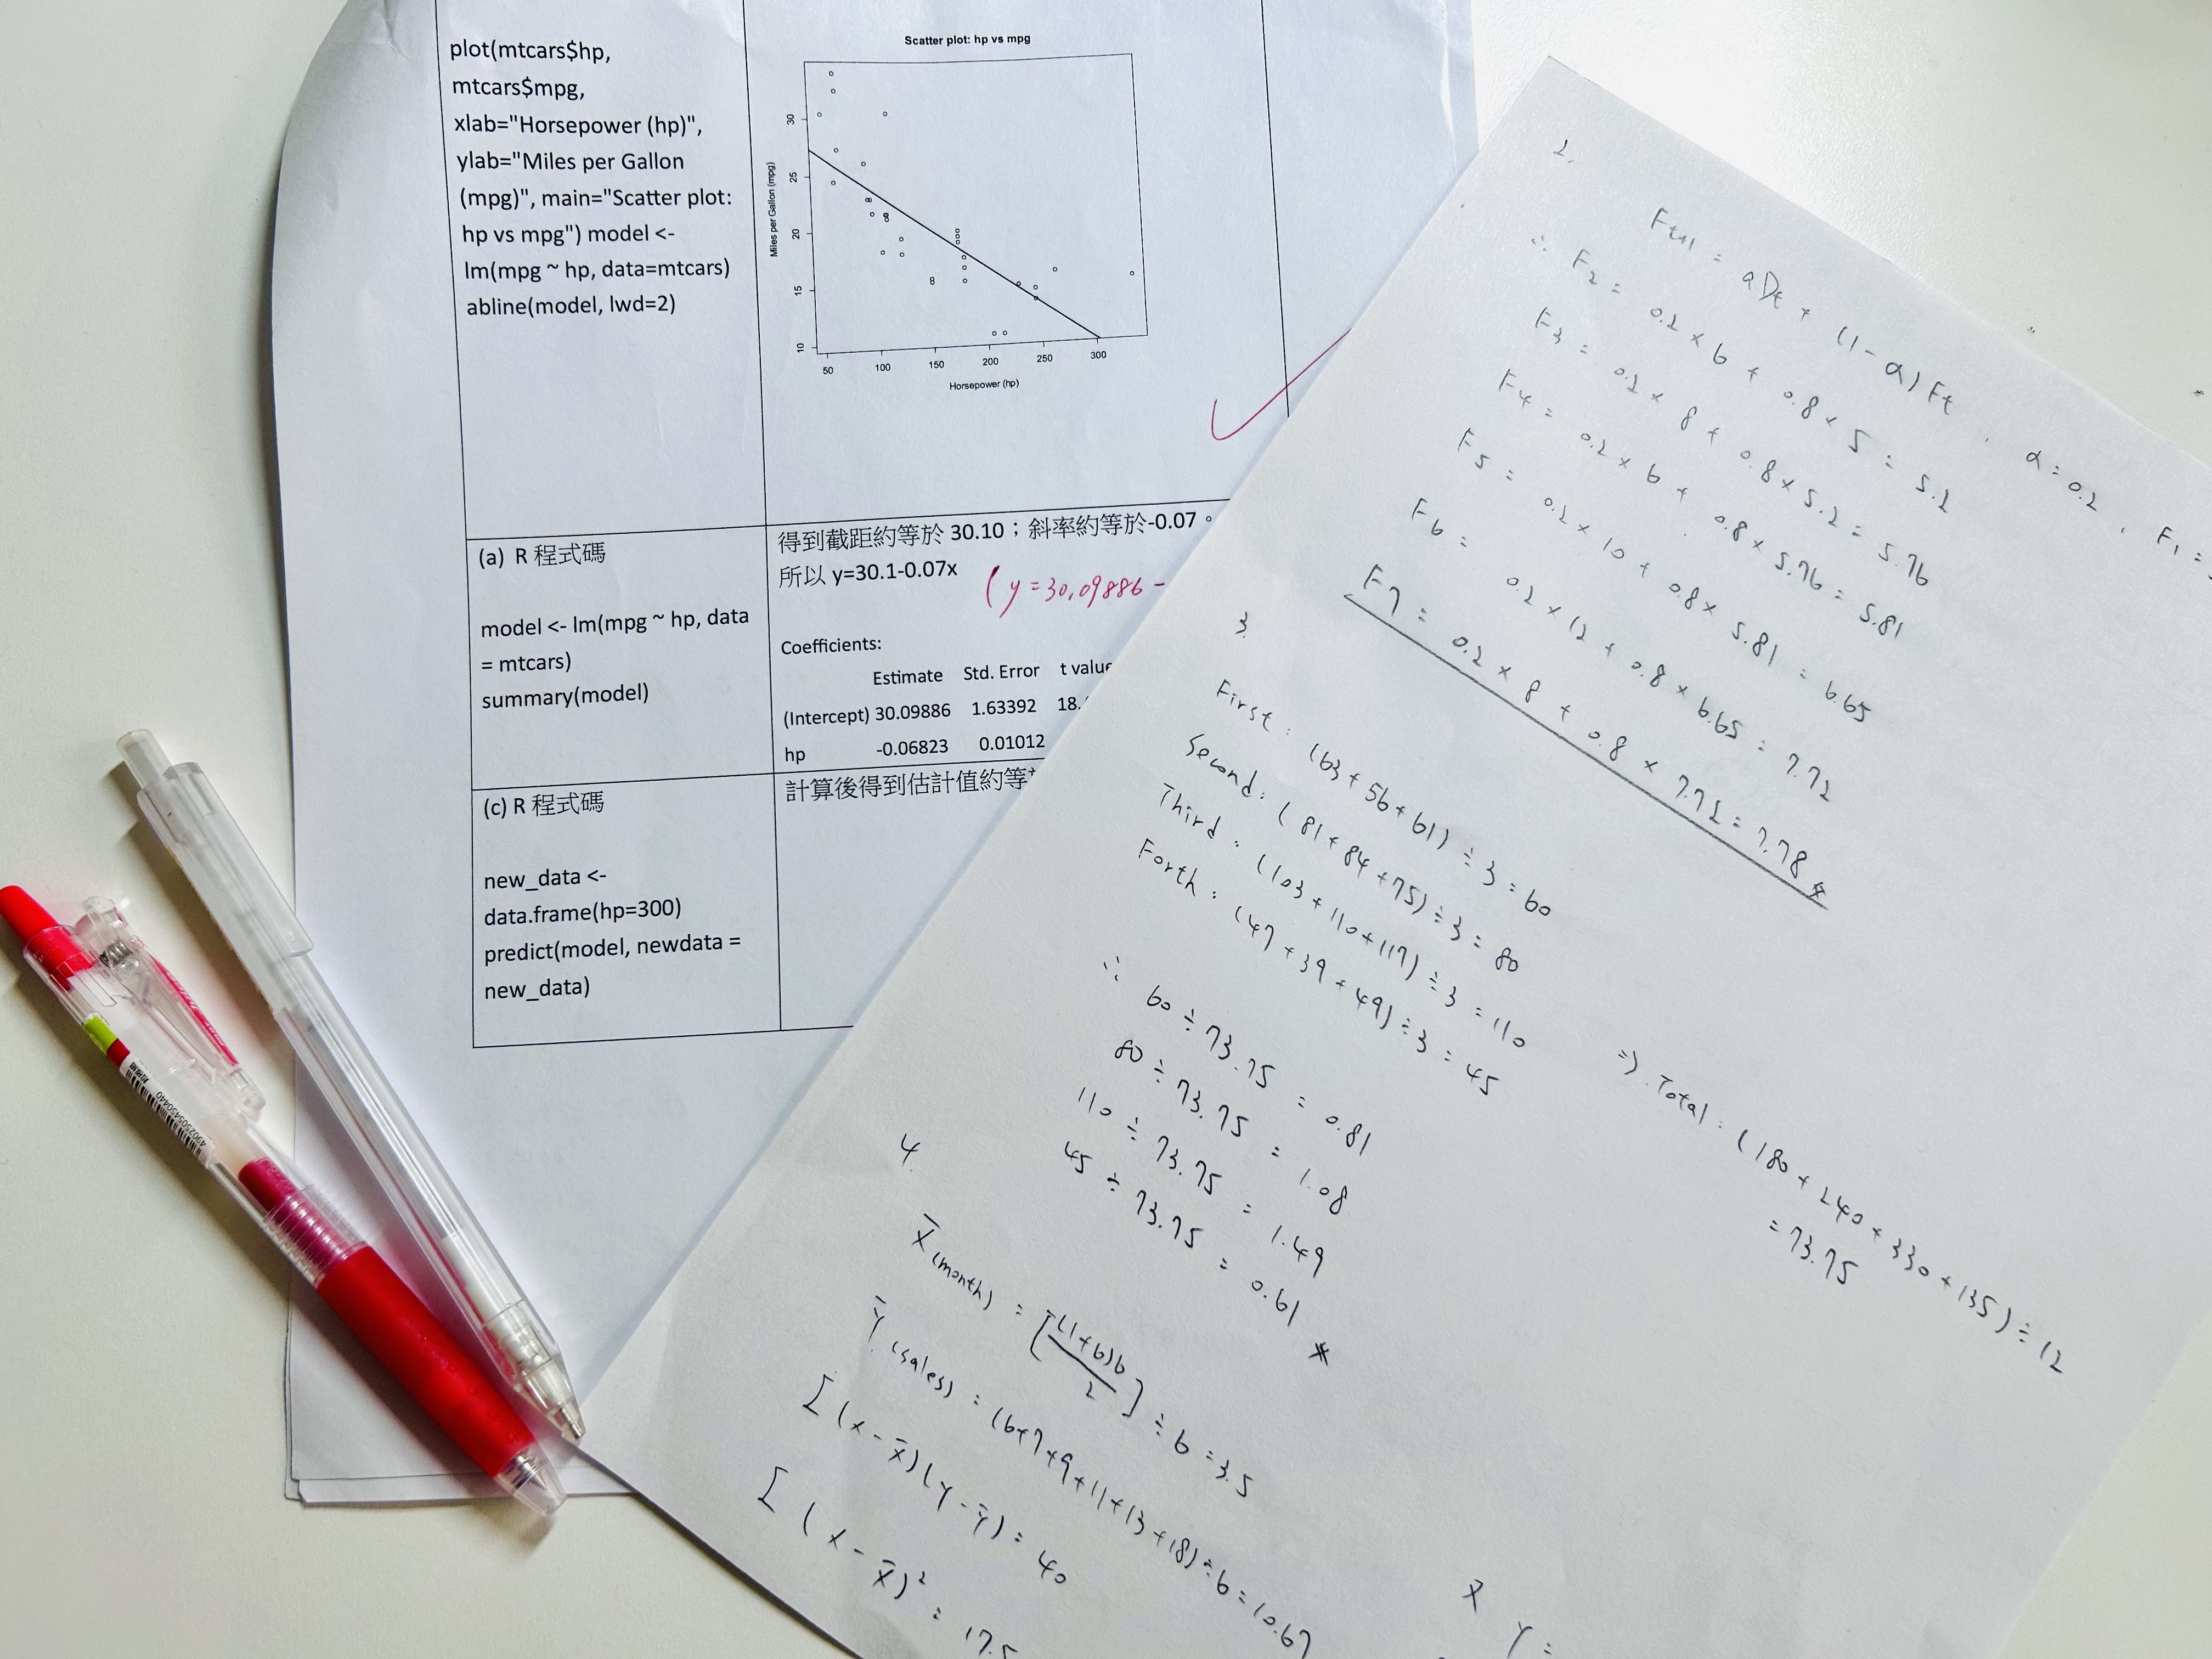 plot(mtcars$hp,
mtcars$mpg,
xlab="Horsepower (hp)",
ylab="Miles per Gallon
(mpg)", main="Scatter plot:
hp vs mpg") model <-
lm(mpg ~ hp, data=mtcars)
abline(model, lwd=2)
Scatter plot: hp vs mpg
Miles per Gallon (mpg)
30
25
20
15
10
50 100 150 200 250 300
Horsepower (hp)
(a) R 程式碼
model <- lm(mpg ~ hp, data
= mtcars)
summary(model)
得到截距約等於 30.10；斜率約等於-0.07。
所以 y=30.1-0.07x
(y=30.09886-
Coefficients:
Estimate Std. Error t value
(Intercept) 30.09886 1.63392 18.
hp -0.06823 0.01012
(c) R 程式碼
new_data <-
data.frame(hp=300)
predict(model, newdata =
new_data)
計算後得到估計值約等
4902505450440
2.
Ft+1 = αDt + (1-α)Ft , α=0.2 , F1 =
∴ F2 = 0.2 × 6 + 0.8 × 5 = 5.2
F3 = 0.2 × 8 + 0.8 × 5.2 = 5.76
F4 = 0.2 × 6 + 0.8 × 5.76 = 5.81
F5 = 0.2 × 10 + 0.8 × 5.81 = 6.65
F6 = 0.2 × 12 + 0.8 × 6.65 = 7.72
F7 = 0.2 × 8 + 0.8 × 7.72 = 7.78
3.
First : (63+56+61) ÷ 3 = 60
Second : (81+84+75) ÷ 3 = 80
Third : (103+110+117) ÷ 3 = 110
Forth : (47+39+49) ÷ 3 = 45
=> Total : (180+240+330+135) ÷ 12
= 73.75
∴ 60 ÷ 73.75 = 0.81
80 ÷ 73.75 = 1.08
110 ÷ 73.75 = 1.49
45 ÷ 73.75 = 0.61 *
4.
X̄ (month) = [(1+6)6/2] ÷ 6 = 3.5
Ȳ (sales) = (6+7+9+11+13+18) ÷ 6 = 10.67
Σ(x-x̄)(y-ȳ) = 40
Σ(x-x̄)² = 17.5
x̄ y =